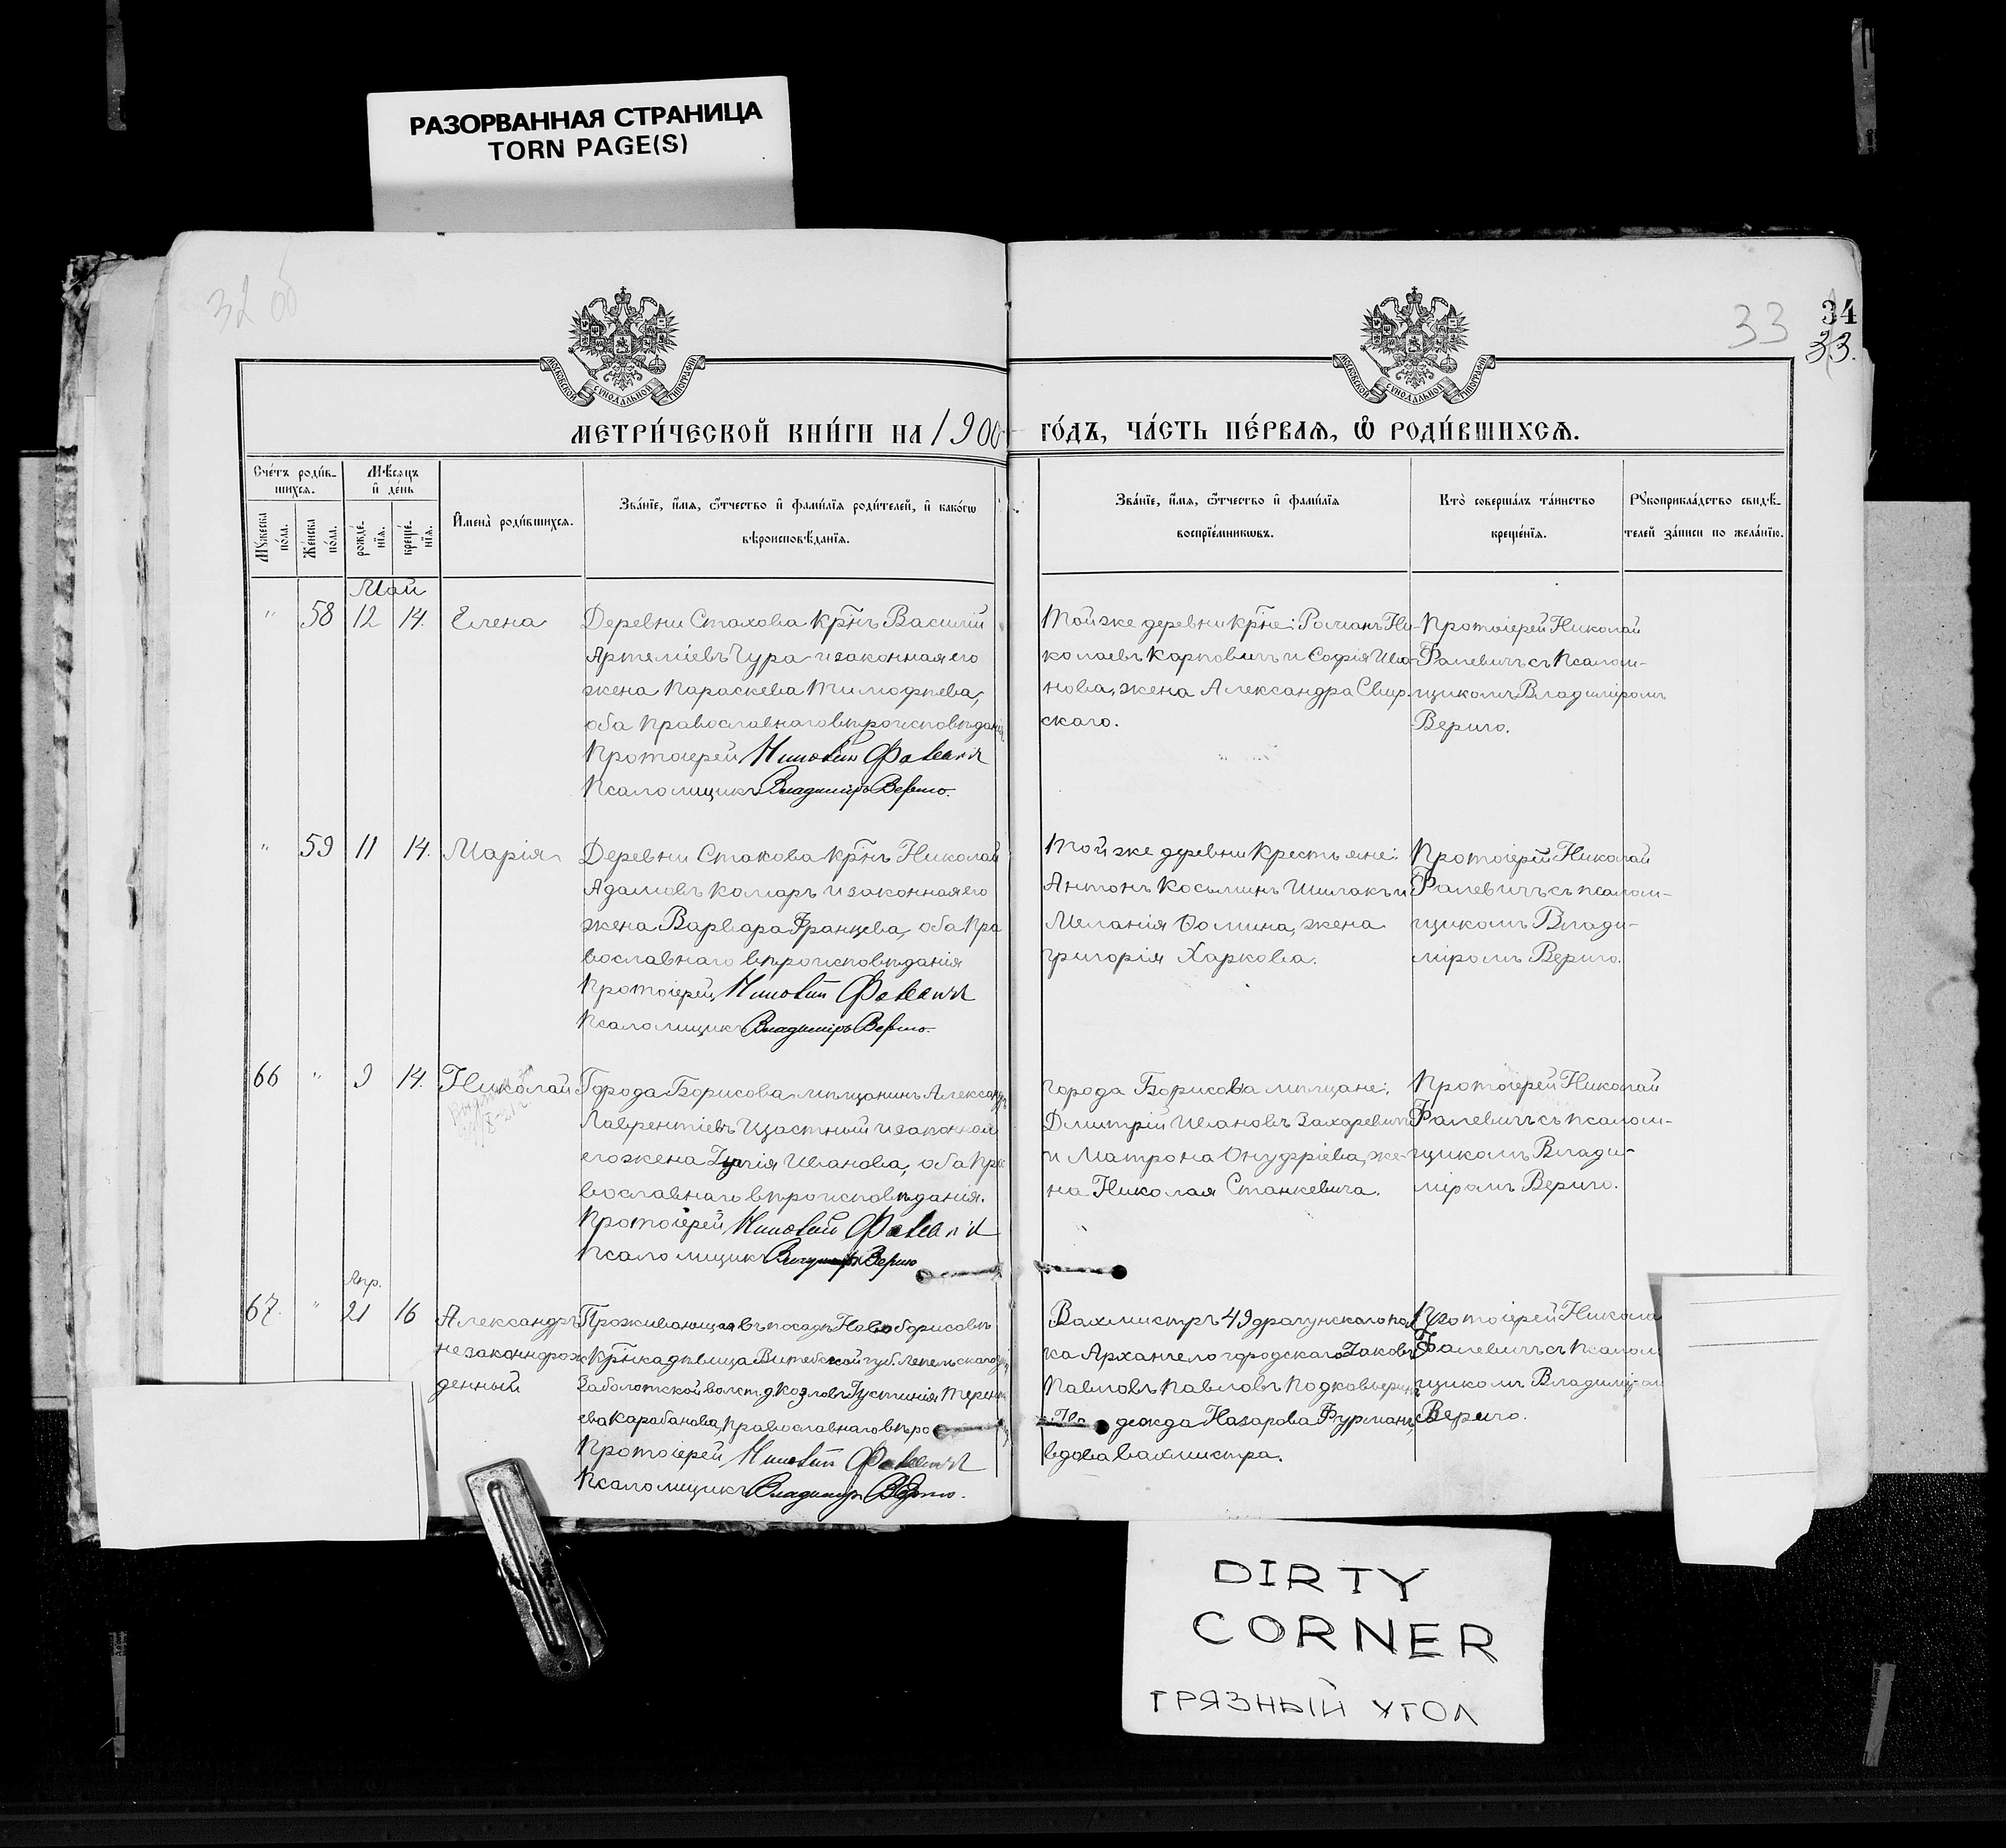 РАЗОРВАННАЯ СТРАНИЦА
TORN PAGE(S)
32 об
33
34
33.
МОСКОВСКОЙ СѴНОДАЛЬНОЙ ТИПОГРАФІИ
МОСКОВСКОЙ СѴНОДАЛЬНОЙ ТИПОГРАФІИ
МЕТРИ́ЧЕСКОЙ КНИ́ГИ НА 1900 ГО́ДЪ, ЧА́СТЬ ПЕ́РВАЯ, Ѽ РОДИ́ВШИХСЯ.
Сче́тъ роди́в-
шихся.
Мѣсяцъ
и҆ де́нь
Мꙋжеска по́ла.
Же́нска по́ла.
рожде́-
нїя.
креще́-
нїя.
И҆мена̀ роди́вшихся.
Зва́нїе, и҆́мя, ѻ҆́тчество и҆ фами́лїя роди́телей, и҆ како́гѡ
вѣроисповѣ́данїя.
Зва́нїе, и҆́мя, ѻ҆́тчество и҆ фами́лїя
воспрїе́мникѡвъ.
Кто̀ соверша́лъ та́инство
креще́нїя.
Рꙋкоприкла́дство свидѣ́-
телей за́писи по жела́нїю.
Май
" 58 12 14. Елена
Деревни Стахова кр̃нъ Василій
Артеміевъ Чура и законная его
жена Параскева Тимофѣева,
оба православнаго вѣроисповѣданія
Протоіерей Николай Фалевичъ
Псаломщикъ Владиміръ Вериго.
Той же деревни кр̃не: Романъ Ни-
колаевъ Карповичъ и Софія Ива-
нова, жена Александра Свир-
скаго.
Протоіерей Николай
Фалевичъ съ псалом-
щикомъ Владиміромъ
Вериго.
" 59 11 14. Марія
Деревни Стахова кр̃нъ Николай
Адамовъ Комаръ и законная его
жена Варвара Францева, оба пра
вославнаго вѣроисповѣданія
Протоіерей Николай Фалевичъ
Псаломщикъ Владиміръ Вериго.
Той же деревни крестьяне:
Антонъ Косьминъ Шишакъ и
Меланія Ѳомина, жена
Григорія Харкова.
Протоіерей Николай
Фалевичъ съ псалом-
щикомъ Влади-
міромъ Вериго.
66 " 9 14. Николай
Города Борисова мѣщанинъ Александръ
Лаврентіевъ Щастный и законная
его жена Иванова, оба пра
вославнаго вѣроисповѣданія.
Протоіерей Николай Фалевичъ
Псаломщикъ Владиміръ Вериго
Города Борисова мѣщане:
Дмитрій Ивановъ Захаревичъ
и Матрона Онуфріева, же-
на Николая Станкевича.
Протоіерей Николай
Фалевичъ съ псалом-
щикомъ Влади-
міромъ Вериго.
Апр.
67. " 21 16 Александръ
незаконнорож
денный
Проживающая въ посадѣ Ново-Борисовѣ
кр̃нка дѣвица Витебской губ. Лепельскаго
Заболотской волст. д. Козловъ Іустинія Терен
ева Карабанова, православнаго вѣро
Протоіерей Николай Фалевичъ
Псаломщикъ Владиміръ Вериго.
Вахмистръ 49 драгунскаго пол
ка Архангелогородскаго Іаковъ
Павловъ Павловъ Подковыринъ
дежда Назарова Фурманъ,
вдова вахмистра.
Протоіерей Никола
Фалевичъ съ псалом
щикомъ Владиміром
Вериго.
DIRTY
CORNER
ГРЯЗНЫЙ УГОЛ